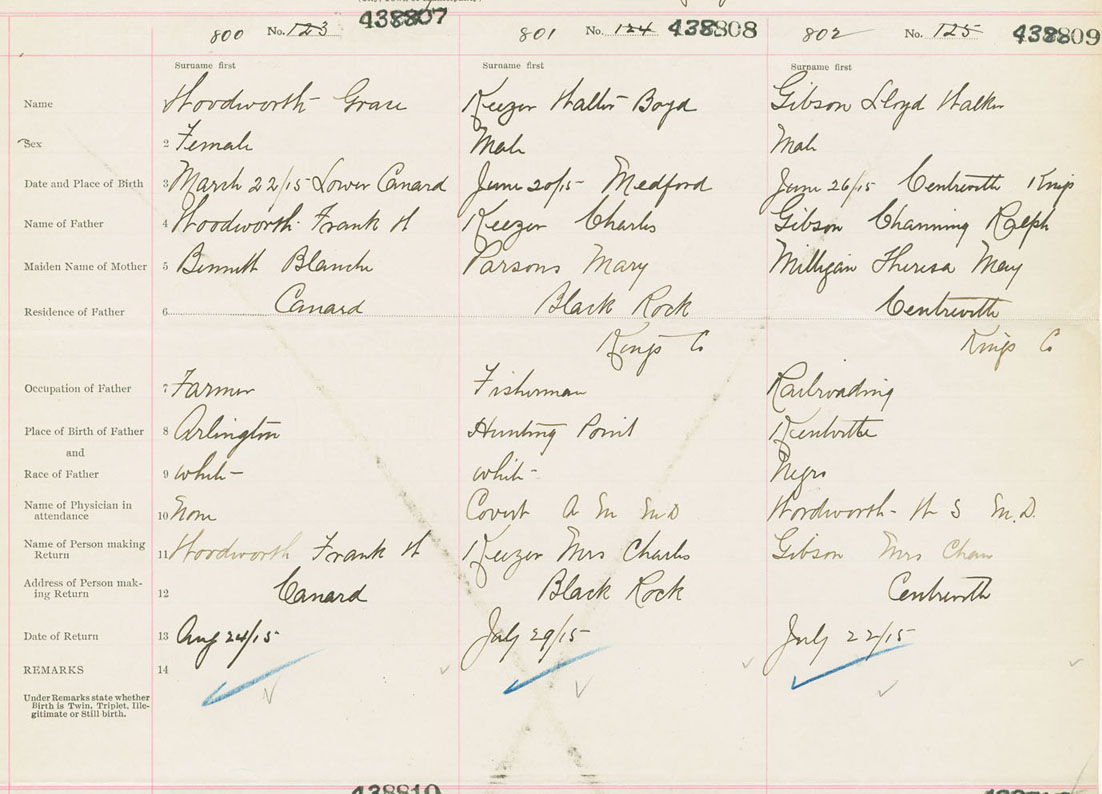 438807
800 No. 123
801 No. 124 438808
802 No. 125 438809
Surname first Surname first Surname first
Name Woodworth Grace Keezer Walter Boyd Gibson Lloyd Walker
Sex 2 Female Male Male
Date and Place of Birth 3 March 22/15 Lower Canard June 20/15 Medford June 26/15 Centreville Kings
Name of Father 4 Woodworth Frank H Keezer Charles Gibson Channing Ralph
Maiden Name of Mother 5 Bennett Blanche Parsons Mary Milligan Theresa May
Residence of Father 6 Canard Black Rock Centreville
Kings Co Kings Co
Occupation of Father 7 Farmer Fisherman Railroading
Place of Birth of Father 8 Arlington Hunting Point Kentville
and
Race of Father 9 white white Negro
Name of Physician in
attendance 10 None Covert A M M.D Woodworth W S M.D.
Name of Person making
Return 11 Woodworth Frank H Keezer Mrs Charles Gibson Mrs Chan
Address of Person mak-
ing Return 12 Canard Black Rock Centreville
Date of Return 13 Aug 24/15 July 29/15 July 22/15
REMARKS 14
Under Remarks state whether
Birth is Twin, Triplet, Ille-
gitimate or Still birth.
438810